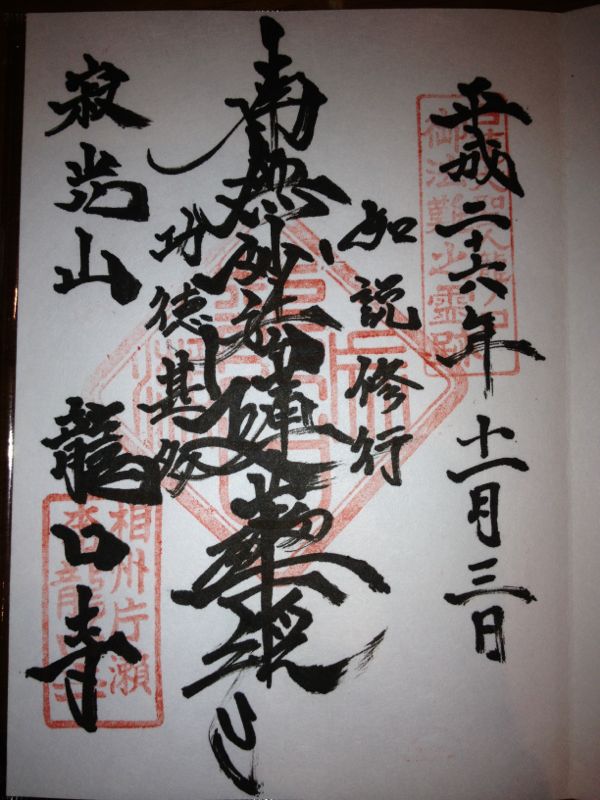 平成二十六年十一月三日
御法難之霊跡
如説修行
南無妙法蓮華経
功徳甚多
寂光山 龍口寺
相州片瀬